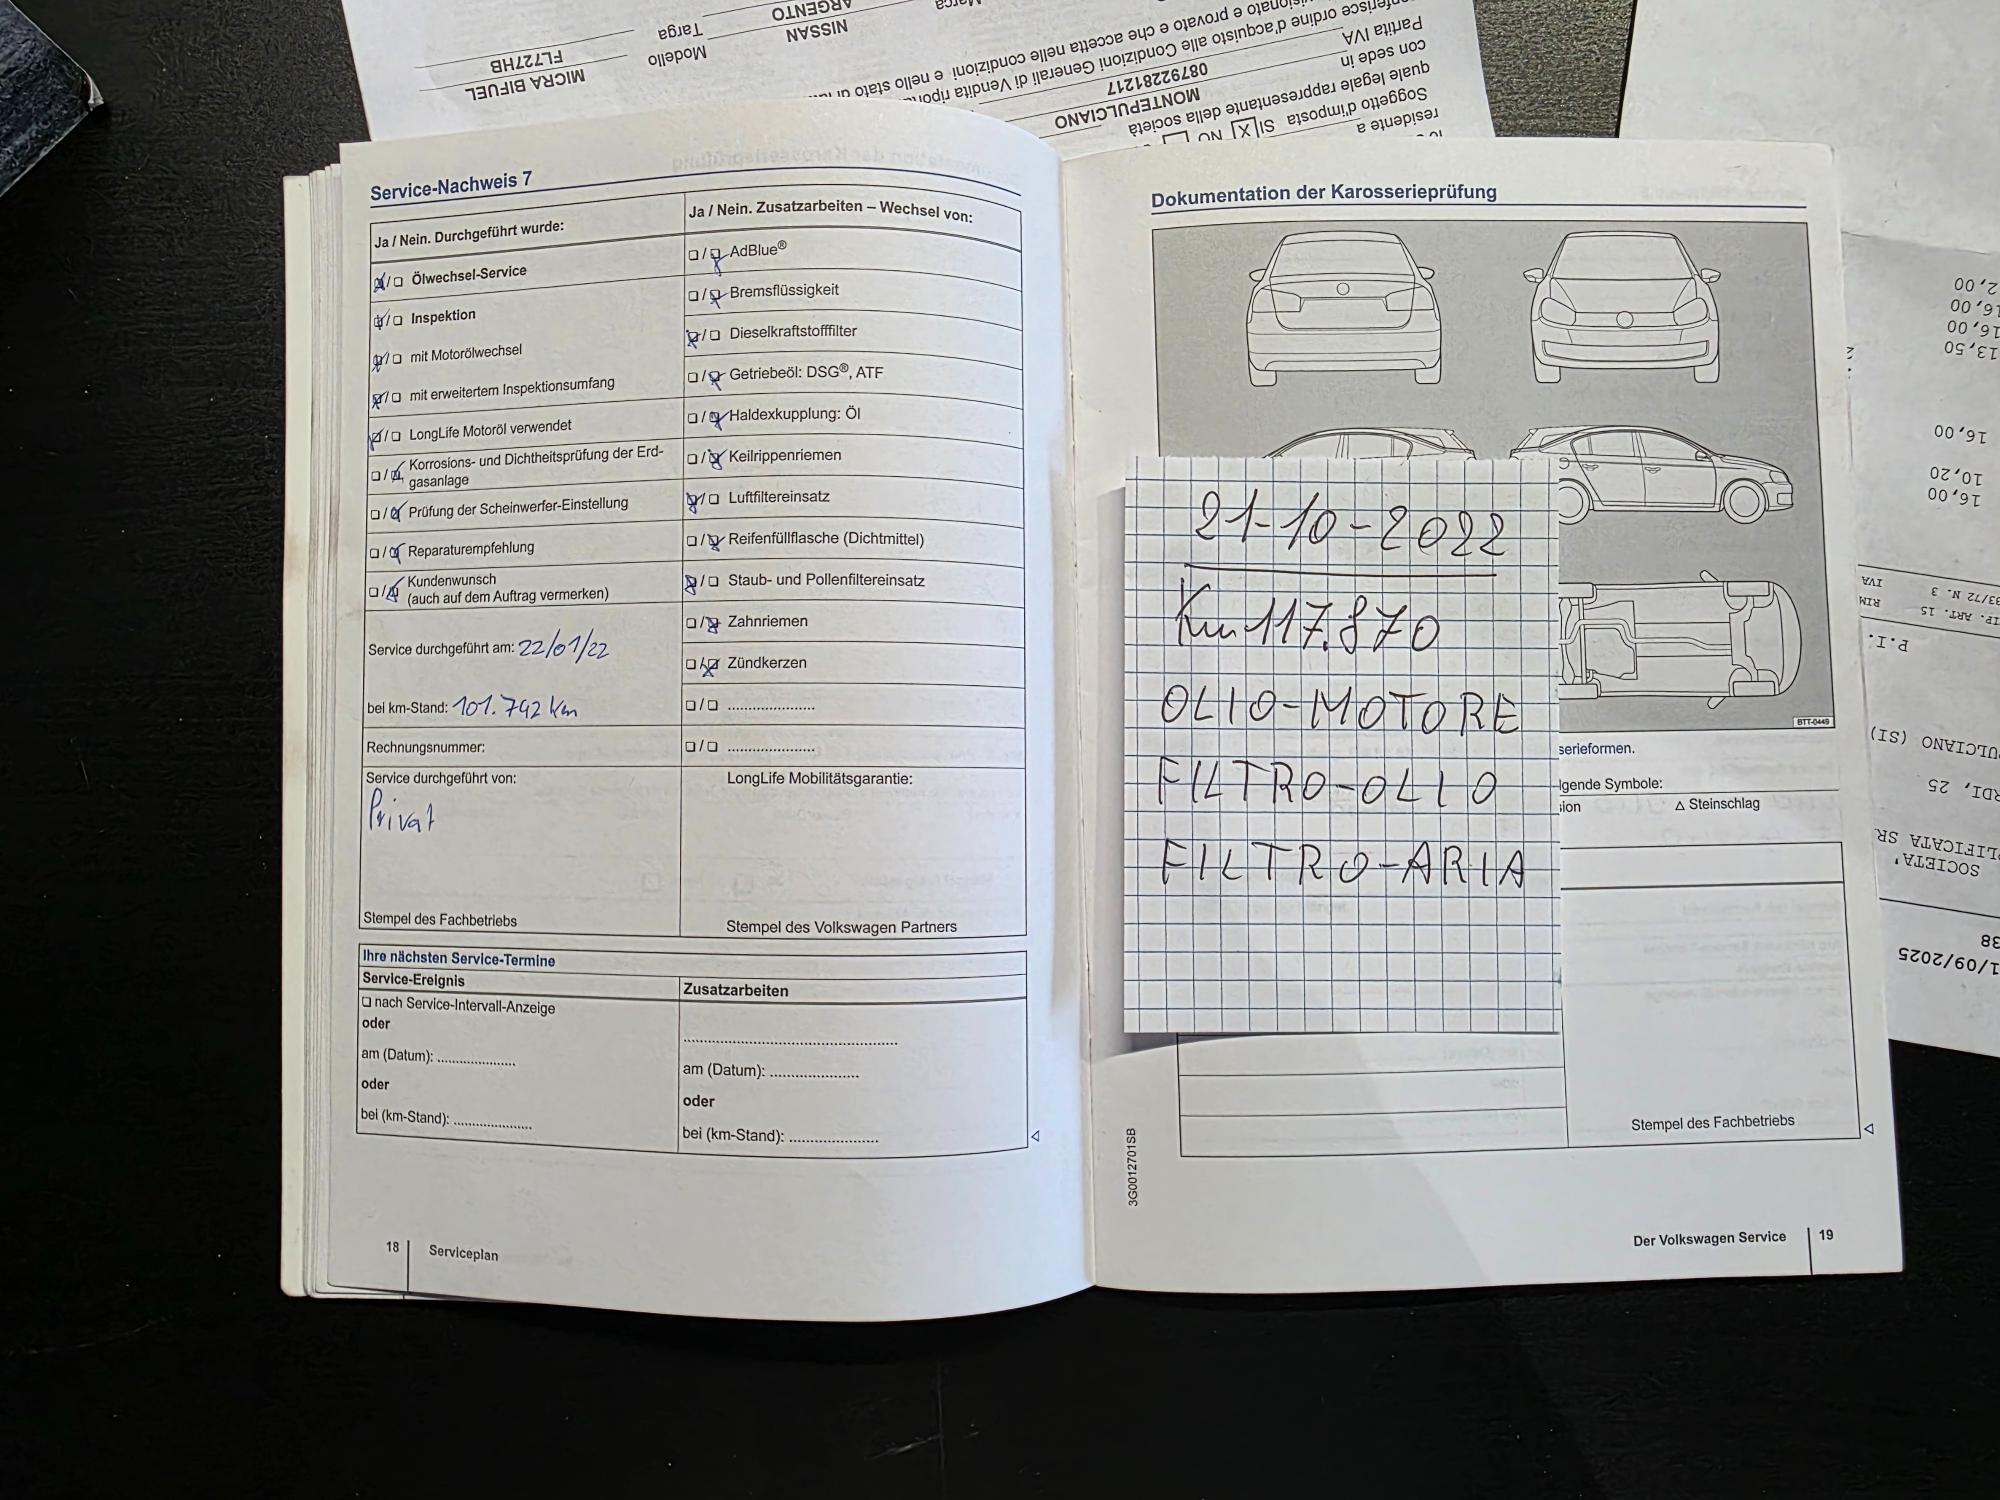 MICRA BIFUEL
FL727HB
Modello
Targa
NISSAN
ARGENTO
Marca
residente a
Soggetto d'imposta SI X NO
quale legale rappresentante della società
MONTEPULCIANO
con sede in
08792281217
Partita IVA
Service-Nachweis 7
Ja / Nein. Durchgeführt wurde:
❏/❏ Ölwechsel-Service
❏/❏ Inspektion
❏/❏ mit Motorölwechsel
❏/❏ mit erweitertem Inspektionsumfang
❏/❏ LongLife Motoröl verwendet
❏/❏ Korrosions- und Dichtheitsprüfung der Erd-
gasanlage
❏/❏ Prüfung der Scheinwerfer-Einstellung
❏/❏ Reparaturempfehlung
❏/❏ Kundenwunsch
(auch auf dem Auftrag vermerken)
Service durchgeführt am: 22/01/22
bei km-Stand: 101.742 km
Rechnungsnummer:
Service durchgeführt von:
Privat
Stempel des Fachbetriebs
Ja / Nein. Zusatzarbeiten – Wechsel von:
❏/❏ AdBlue®
❏/❏ Bremsflüssigkeit
❏/❏ Dieselkraftstofffilter
❏/❏ Getriebeöl: DSG®, ATF
❏/❏ Haldexkupplung: Öl
❏/❏ Keilrippenriemen
❏/❏ Luftfiltereinsatz
❏/❏ Reifenfüllflasche (Dichtmittel)
❏/❏ Staub- und Pollenfiltereinsatz
❏/❏ Zahnriemen
❏/❏ Zündkerzen
❏/❏ .....................
❏/❏ .....................
LongLife Mobilitätsgarantie:
Stempel des Volkswagen Partners
Ihre nächsten Service-Termine
Service-Ereignis
❏ nach Service-Intervall-Anzeige
oder
am (Datum): ...................
oder
bei (km-Stand): ...................
Zusatzarbeiten
am (Datum): .....................
oder
bei (km-Stand): .....................
18
Serviceplan
Dokumentation der Karosserieprüfung
BTT-0449
21-10-2022
Km 117.870
OLIO-MOTORE
FILTRO-OLIO
FILTRO-ARIA
serieformen.
lgende Symbole:
sion
△ Steinschlag
Stempel des Fachbetriebs
3G0012701SB
Der Volkswagen Service
19
2,00
16,00
16,00
13,50
16,00
10,20
16,00
IVA
RIM
P.I.
PULCIANO (SI)
RDI, 25
PLIFICATA SR
SOCIETA'
38
1/09/2025